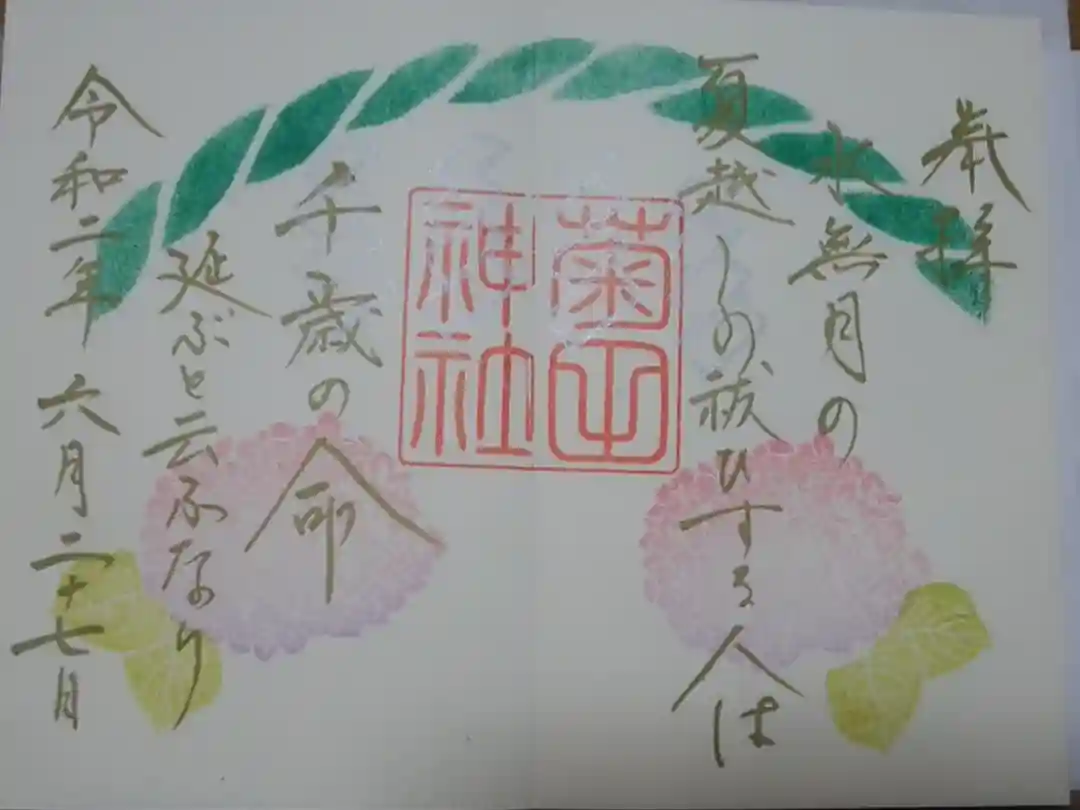 奉拝
水無月の
夏越しの祓ひする人は
菊田
神社
千歳の命
延ぶと云ふなり
令和二年 六月二十七日